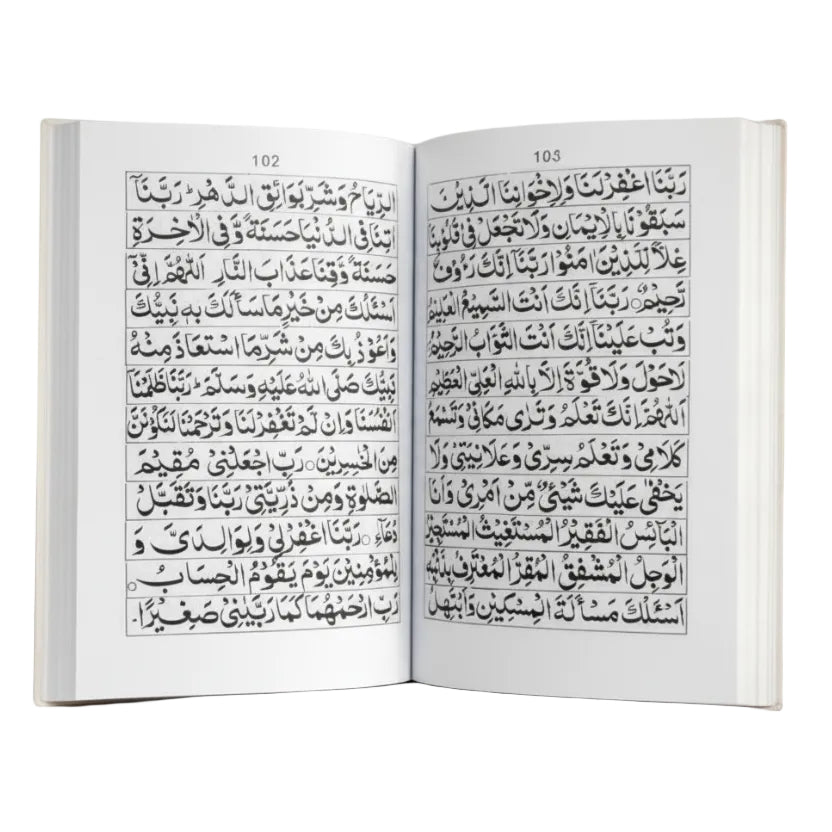 102
الرِّيَاحُ وَشَرِّ بَوَائِقِ الدَّهْرِ رَبَّنَآ
اٰتِنَا فِى الدُّنْيَا حَسَنَةً وَّ فِى الْاٰخِرَةِ
حَسَنَةً وَّقِنَا عَذَابَ النَّارِ اَللّٰهُمَّ اِنِّىْٓ
اَسْئَلُكَ مِنْ خَيْرِ مَا سَأَلَكَ بِهٖ نَبِيُّكَ
وَاَعُوْذُ بِكَ مِنْ شَرِّ مَا اسْتَعَاذَ مِنْهُ
نَبِيُّكَ صَلَّى اللّٰهُ عَلَيْهِ وَسَلَّمَ رَبَّنَا ظَلَمْنَا
اَنْفُسَنَا وَاِنْ لَّمْ تَغْفِرْلَنَا وَتَرْحَمْنَا لَنَكُوْنَنَّ
مِنَ الْخٰسِرِيْنَ○ رَبِّ اجْعَلْنِىْ مُقِيْمَ
الصَّلٰوةِ وَمِنْ ذُرِّيَّتِىْ رَبَّنَا وَتَقَبَّلْ
دُعَآءِ ○ رَبَّنَا اغْفِرْلِىْ وَلِوَالِدَىَّ وَ
لِلْمُؤْمِنِيْنَ يَوْمَ يَقُوْمُ الْحِسَابُ○
رَبِّ ارْحَمْهُمَا كَمَا رَبَّيٰنِىْ صَغِيْرًا.
103
رَبَّنَا اغْفِرْلَنَا وَلِاِخْوَانِنَا الَّذِيْنَ
سَبَقُوْنَا بِالْاِيْمَانِ وَلَا تَجْعَلْ فِىْ قُلُوْبِنَا
غِلًّا لِّلَّذِيْنَ اٰمَنُوْا رَبَّنَآ اِنَّكَ رَءُوْفٌ
رَّحِيْمٌ○ رَبَّنَآ اِنَّكَ اَنْتَ السَّمِيْعُ الْعَلِيْمُ
وَتُبْ عَلَيْنَآ اِنَّكَ اَنْتَ التَّوَّابُ الرَّحِيْمُ
لَاحَوْلَ وَلَا قُوَّةَ اِلَّا بِاللّٰهِ الْعَلِىِّ الْعَظِيْمِ
اَللّٰهُمَّ اِنَّكَ تَعْلَمُ وَتَرٰى مَكَانِىْ وَتَسْمَعُ
كَلَامِىْ وَتَعْلَمُ سِرِّىْ وَعَلَانِيَتِىْ وَلَا
يَخْفٰى عَلَيْكَ شَيْئٌ مِّنْ اَمْرِىْ وَاَنَا
الْبَآئِسُ الْفَقِيْرُ الْمُسْتَغِيْثُ الْمُسْتَجِيْرُ
الْوَجِلُ الْمُشْفِقُ الْمُقِرُّ الْمُعْتَرِفُ بِذَنْبِهٖ
اَسْئَلُكَ مَسْأَلَةَ الْمِسْكِيْنِ وَاَبْتَهِلُ